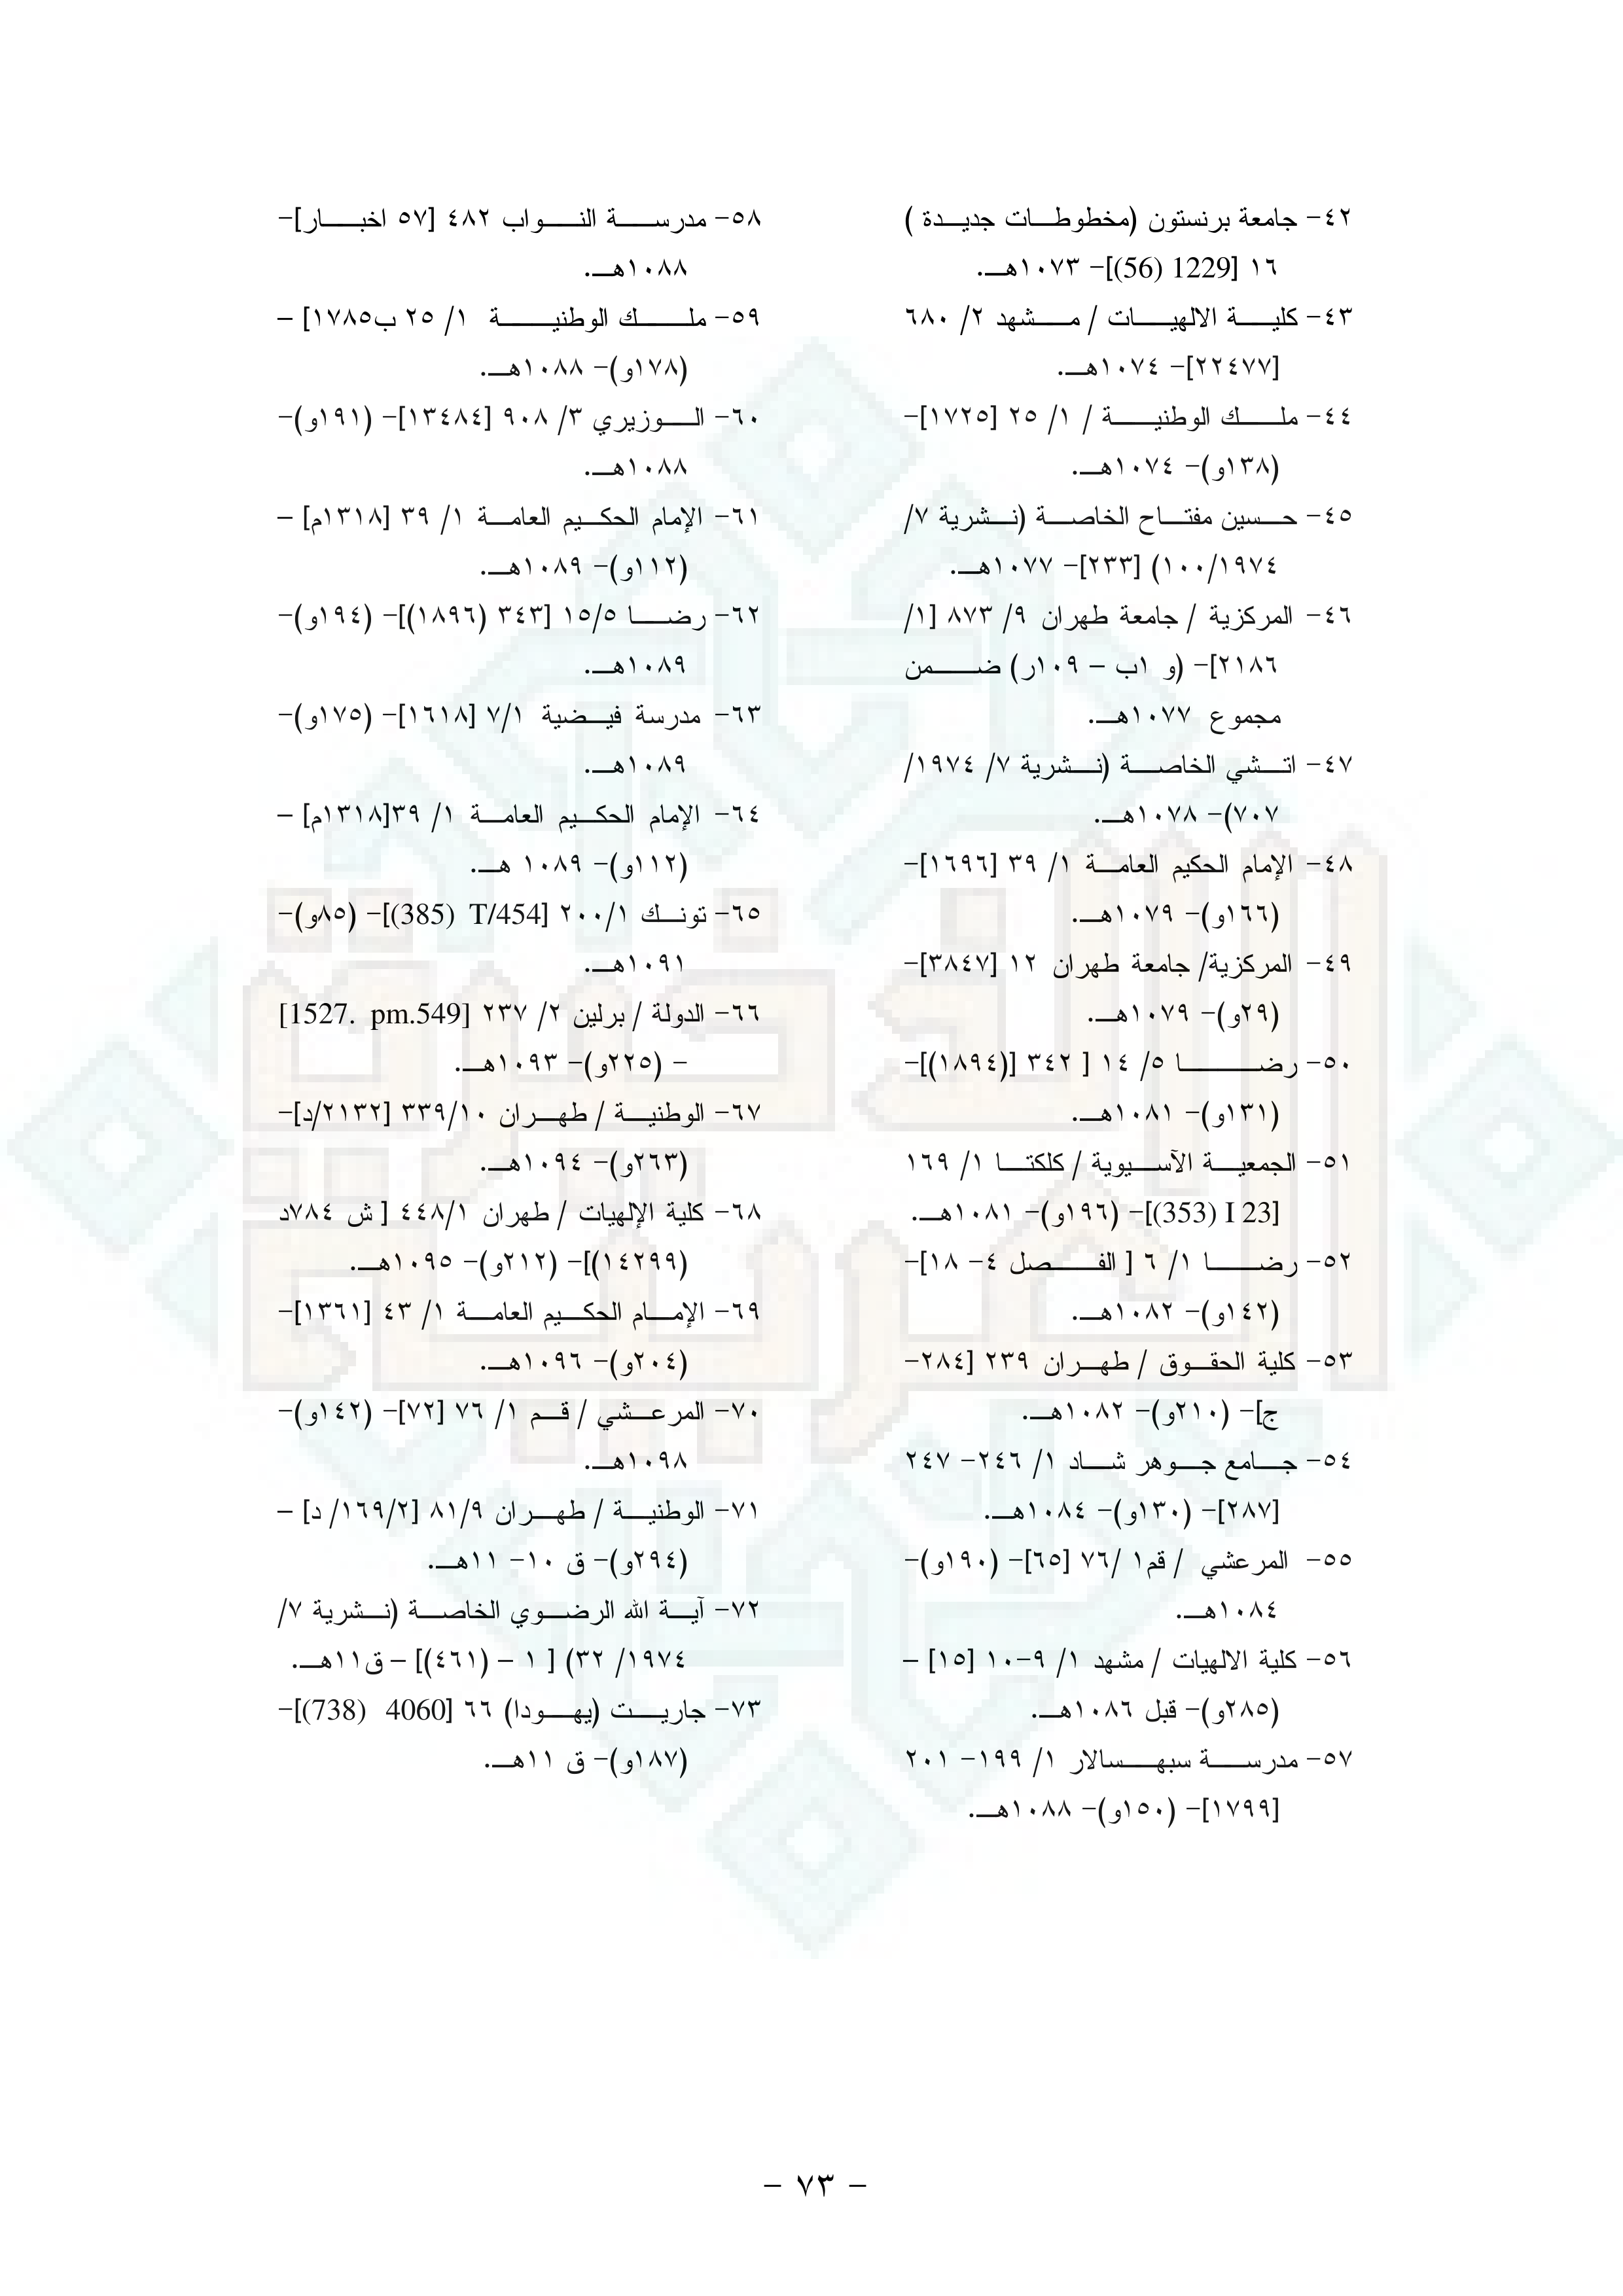 ٤٢- جامعة برنستون (مخطوطات جديدة )
١٦ [1229 (56)]- ١٠٧٣هـ.
٤٣- كلية الالهيات / مشهد ٢/ ٦٨٠
[٢٢٤٧٧]- ١٠٧٤هـ.
٤٤- ملك الوطنية / ١/ ٢٥ [١٧٢٥]-
(١٣٨و)- ١٠٧٤هـ.
٤٥- حسين مفتاح الخاصة (نشرية ٧/
١٠٠/١٩٧٤) [٢٣٣]- ١٠٧٧هـ.
٤٦- المركزية / جامعة طهران ٩/ ٨٧٣ [١/
٢١٨٦]- (و ١ب – ١٠٩ر) ضمن
مجموع ١٠٧٧هـ.
٤٧- اتشي الخاصة (نشرية ٧/ ١٩٧٤/
٧٠٧)- ١٠٧٨هـ.
٤٨- الإمام الحكيم العامة ١/ ٣٩ [١٦٩٦]-
(١٦٦و)- ١٠٧٩هـ.
٤٩- المركزية/ جامعة طهران ١٢ [٣٨٤٧]-
(٢٩و)- ١٠٧٩هـ.
٥٠- رضا ٥/ ١٤ [ ٣٤٢ [(١٨٩٤)]-
(١٣١و)- ١٠٨١هـ.
٥١- الجمعية الآسيوية / كلكتا ١/ ١٦٩
[I 23 (353)]- (١٩٦و)- ١٠٨١هـ.
٥٢- رضا ١/ ٦ [ الفصل ٤- ١٨]-
(١٤٢و)- ١٠٨٢هـ.
٥٣- كلية الحقوق / طهران ٢٣٩ [٢٨٤-
ج]- (٢١٠و)- ١٠٨٢هـ.
٥٤- جامع جوهر شاد ١/ ٢٤٦- ٢٤٧
[٢٨٧]- (١٣٠و)- ١٠٨٤هـ.
٥٥- المرعشي / قم١ /٧٦ [٦٥]- (١٩٠و)-
١٠٨٤هـ.
٥٦- كلية الالهيات / مشهد ١/ ٩-١٠ [١٥] –
(٢٨٥و)- قبل ١٠٨٦هـ.
٥٧- مدرسة سبهسالار ١/ ١٩٩- ٢٠١
[١٧٩٩]- (١٥٠و)- ١٠٨٨هـ.
٥٨- مدرسة النواب ٤٨٢ [٥٧ اخبار]-
١٠٨٨هـ.
٥٩- ملك الوطنية ١/ ٢٥ ب١٧٨٥] –
(١٧٨و)- ١٠٨٨هـ.
٦٠- الوزيري ٣/ ٩٠٨ [١٣٤٨٤]- (١٩١و)-
١٠٨٨هـ.
٦١- الإمام الحكيم العامة ١/ ٣٩ [١٣١٨م] –
(١١٢و)- ١٠٨٩هـ.
٦٢- رضا ١٥/٥ [٣٤٣ (١٨٩٦)]- (١٩٤و)-
١٠٨٩هـ.
٦٣- مدرسة فيضية ٧/١ [١٦١٨]- (١٧٥و)-
١٠٨٩هـ.
٦٤- الإمام الحكيم العامة ١/ ٣٩[١٣١٨م] –
(١١٢و)- ١٠٨٩ هـ.
٦٥- تونك ٢٠٠/١ [T/454 (385)]- (٨٥و)-
١٠٩١هـ.
٦٦- الدولة / برلين ٢/ ٢٣٧ [1527. pm.549]
– (٢٢٥و)- ١٠٩٣هـ.
٦٧- الوطنية / طهران ٣٣٩/١٠ [٢١٣٢/د]-
(٢٦٣و)- ١٠٩٤هـ.
٦٨- كلية الإلهيات / طهران ٤٤٨/١ [ ش ٧٨٤د
(١٤٢٩٩)]- (٢١٢و)- ١٠٩٥هـ.
٦٩- الإمام الحكيم العامة ١/ ٤٣ [١٣٦١]-
(٢٠٤و)- ١٠٩٦هـ.
٧٠- المرعشي / قم ١/ ٧٦ [٧٢]- (١٤٢و)-
١٠٩٨هـ.
٧١- الوطنية / طهران ٨١/٩ [١٦٩/٢/ د] –
(٢٩٤و)- ق ١٠- ١١هـ.
٧٢- آية الله الرضوي الخاصة (نشرية ٧/
١٩٧٤/ ٣٢) [ ١ – (٤٦١)] – ق١١هـ.
٧٣- جاريت (يهودا) ٦٦ [4060 (738)]-
(١٨٧و)- ق ١١هـ.
- ٧٣ -